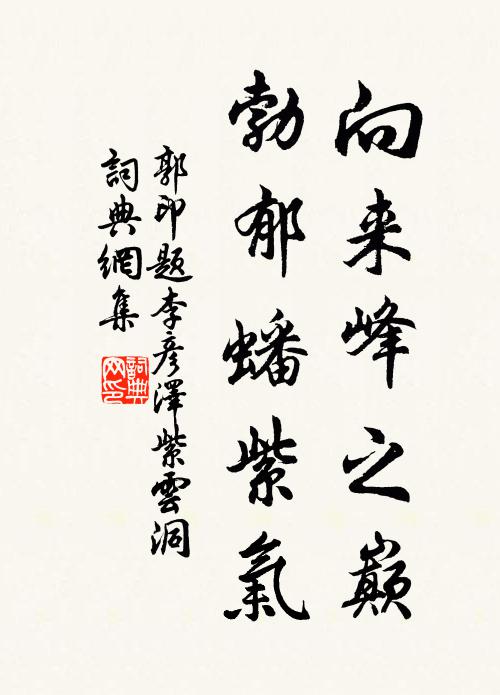 向来峰之巔
勃郁蟠紫氣
郭印题李彦澤紫雲洞
詞典網集
詞典网印